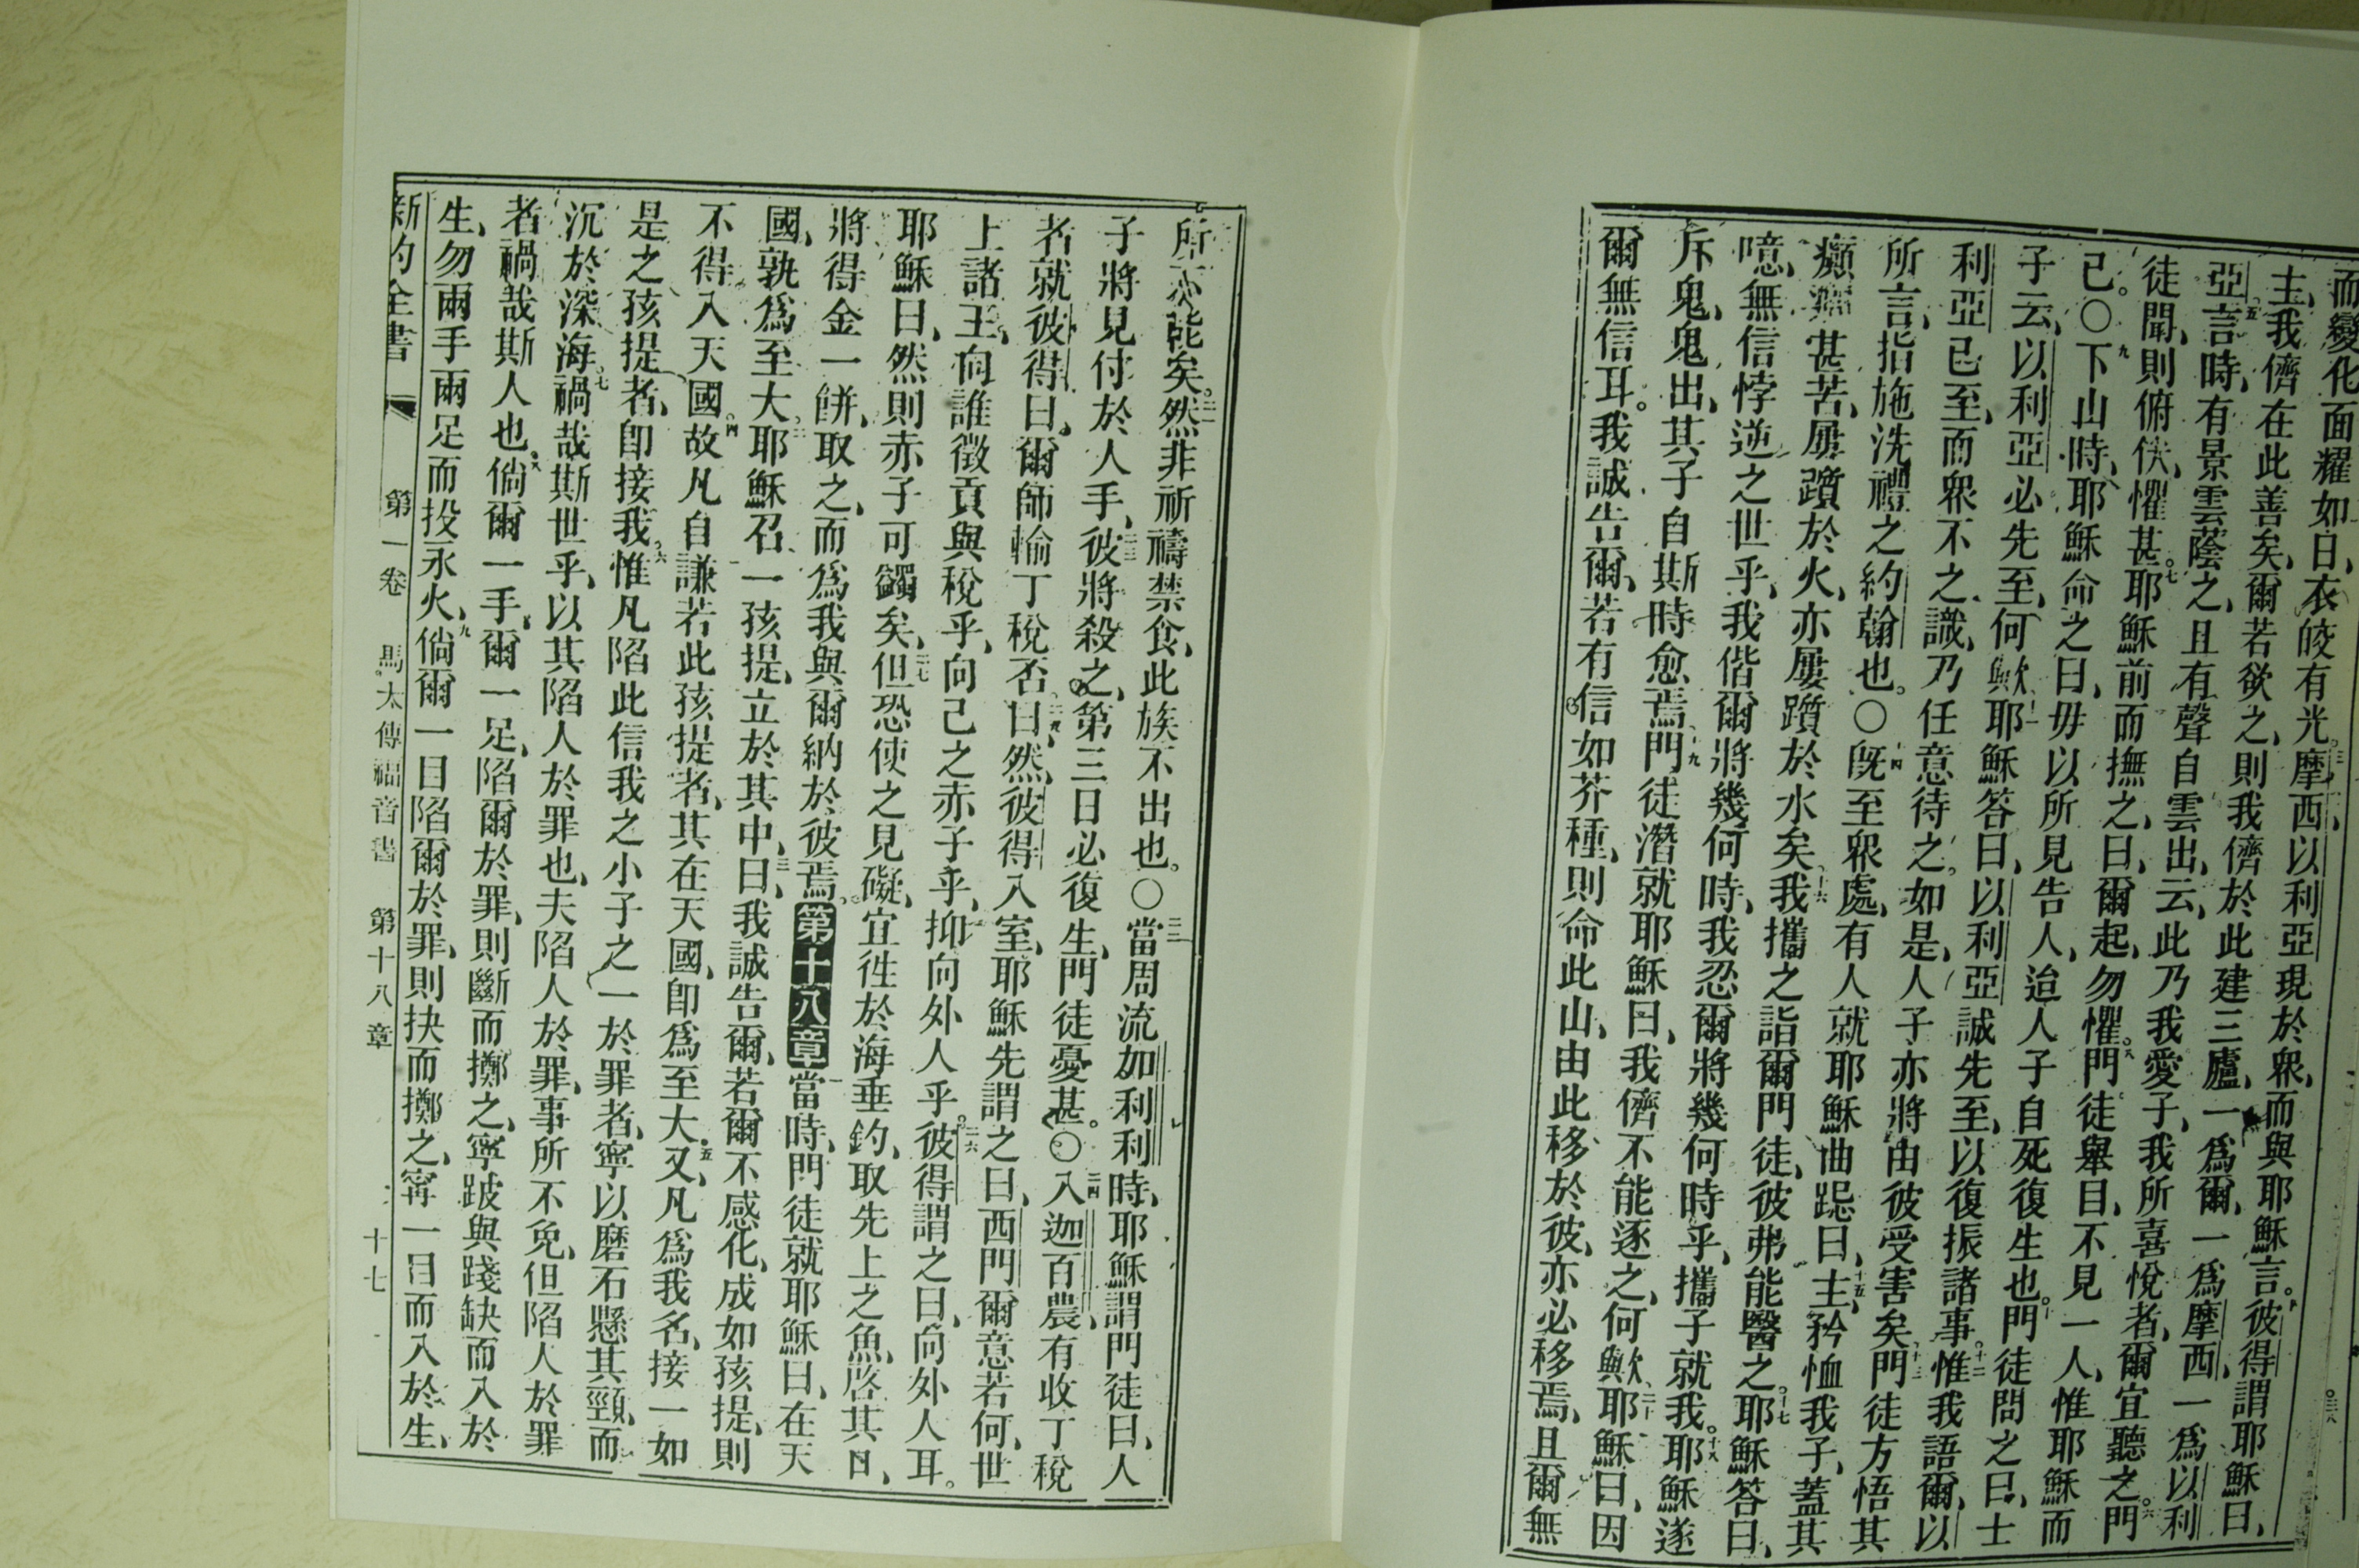 而變化面耀如日、衣皎有光。三摩西、以利亞現於衆、而與耶穌言。四彼得謂耶穌曰、
主、我儕在此善矣、爾若欲之、則我儕於此建三廬、一爲爾、一爲摩西、一爲以利
亞。五言時、有景雲蔭之、且有聲自雲出、云、此乃我愛子、我所喜悅者、爾宜聽之。六門
徒聞、則俯伏、懼甚。七耶穌前而撫之、曰、爾起、勿懼。八門徒舉目、不見一人、惟耶穌而
已。〇九下山時、耶穌命之曰、毋以所見告人、迨人子自死復生也。十門徒問之曰、士
子云、以利亞必先至、何歟。十一耶穌答曰、以利亞誠先至、以復振諸事。十二惟我語爾、以
利亞已至、而衆不之識、乃任意待之。如是、人子亦將由彼受害矣。十三門徒方悟其
所言、指施洗禮之約翰也。〇十四旣至衆處、有人就耶穌曲跽曰、十五主、矜恤我子、蓋其
癲癇甚苦、屢躓於火、亦屢躓於水矣。十六我攜之詣爾門徒、彼弗能醫之。十七耶穌答曰、
噫、無信悖逆之世乎、我偕爾將幾何時、我忍爾將幾何時乎、攜子就我。十八耶穌遂
斥鬼、鬼出、其子自斯時愈焉。十九門徒潛就耶穌曰、我儕不能逐之、何歟。二十耶穌曰、因
爾無信耳。我誠告爾、若有信如芥種、則命此山、由此移於彼、亦必移焉、且爾無
所不能矣。二一然非祈禱禁食、此族不出也。〇二二當周流加利利時、耶穌謂門徒曰、人
子將見付於人手、二三彼將殺之、第三日必復生、門徒憂甚。〇二四入迦百農、有收丁稅
者就彼得曰、爾師輸丁稅否。二五曰、然、彼得入室、耶穌先謂之曰、西門爾意若何、世
上諸王、向誰徵貢與稅乎、向己之赤子乎、抑向外人乎。二六彼得謂之曰、向外人耳。
耶穌曰、然則赤子可蠲矣、二七但恐使之見礙、宜徃於海垂釣、取先上之魚、啓其口、
將得金一餠、取之、而爲我與爾納於彼焉。第十八章一當時、門徒就耶穌曰、在天
國、孰爲至大。二耶穌召一孩提、立於其中、三曰、我誠告爾、若爾不感化、成如孩提、則
不得入天國。四故凡自謙若此孩提者、其在天國、卽爲至大。五又凡爲我名、接一如
是之孩提者、卽接我。六惟凡陷此信我之小子之一於罪者、寧以磨石懸其頸、而
沉於深海。七禍哉斯世乎、以其陷人於罪也、夫陷人於罪、事所不免、但陷人於罪
者、禍哉斯人也。八倘爾一手、爾一足、陷爾於罪、則斷而擲之、寧跛與殘缺而入於
生、勿兩手兩足而投永火、九倘爾一目陷爾於罪、則抉而擲之、寧一目而入於生、
新約全書 第一卷 馬太傳福音書 第十八章 十七